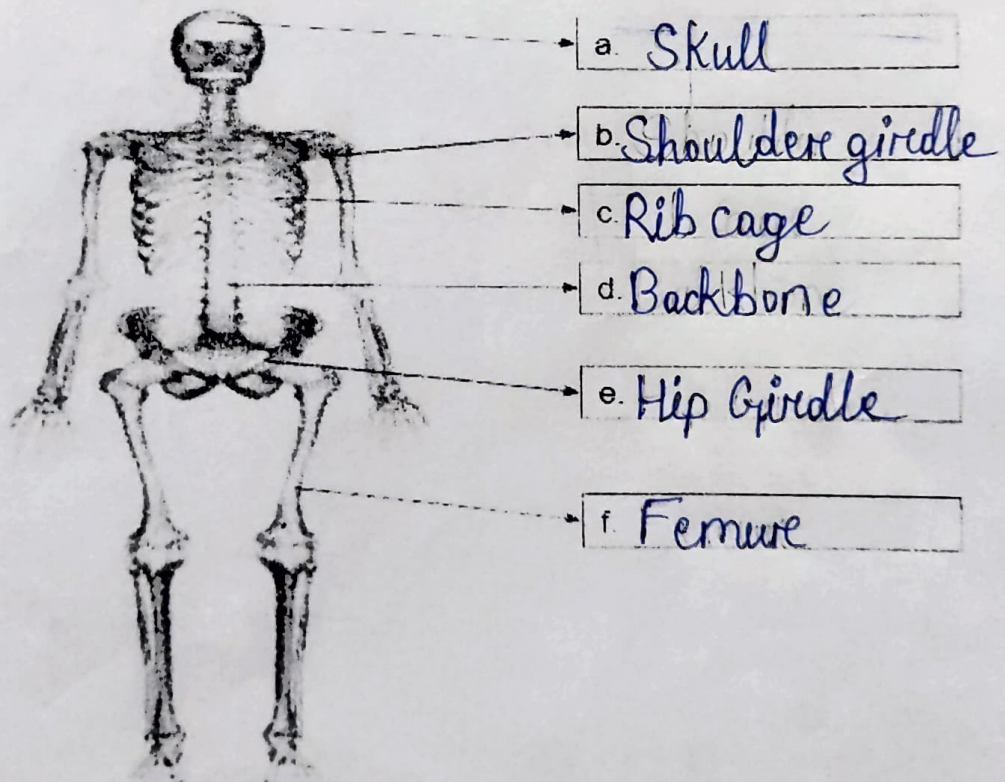 a. Skull
b. Shoulder girdle
c. Rib cage
d. Backbone
e. Hip Girdle
f. Femur